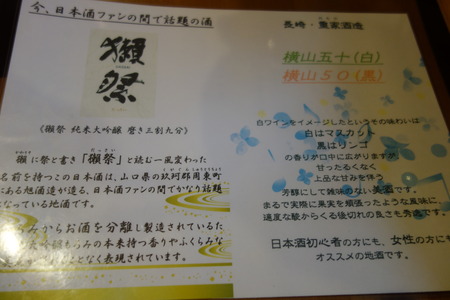 今、日本酒ファンの間で話題の酒
獺祭
《獺祭 純米大吟醸 磨き三割九分》
獺に祭と書き「獺祭」と読む一風変わった
名前を持つこの日本酒は、山口県の玖珂郡周東町
にある旭酒造が造る、日本酒ファンの間でかなり話題
になっている地酒です。
みからお酒を分離し製造されている
もろみの本来持つ香りやふくらみな
なく表現されています。
長崎・農家酒造
横山五十(白)
横山50(黒)
白ワインをイメージしたというその味わいは
白はマスカット
黒はリンゴ
の香りが口中に広がりますが、
甘ったるくなく
上品な甘みを伴う
芳醇にして雑味のない美酒です。
まるで実際に果実を頬張ったような風味に、
適度な酸からくる後切れの良さも秀逸です。
日本酒初心者の方にも、女性の方にも
オススメの地酒です。